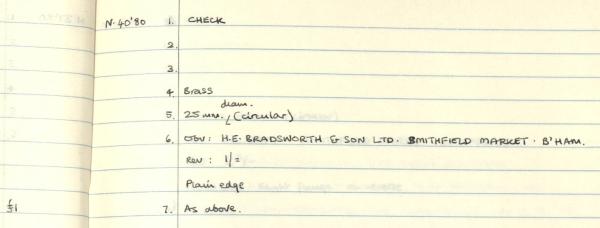 N.40'80 1. CHECK
2.
3.
4. Brass
5. 25 mm. diam. (circular)
6. OBV: H.E. BRADSWORTH & SON LTD. SMITHFIELD MARKET. B'HAM.
REV: 1/=
Plain edge
7. As above.